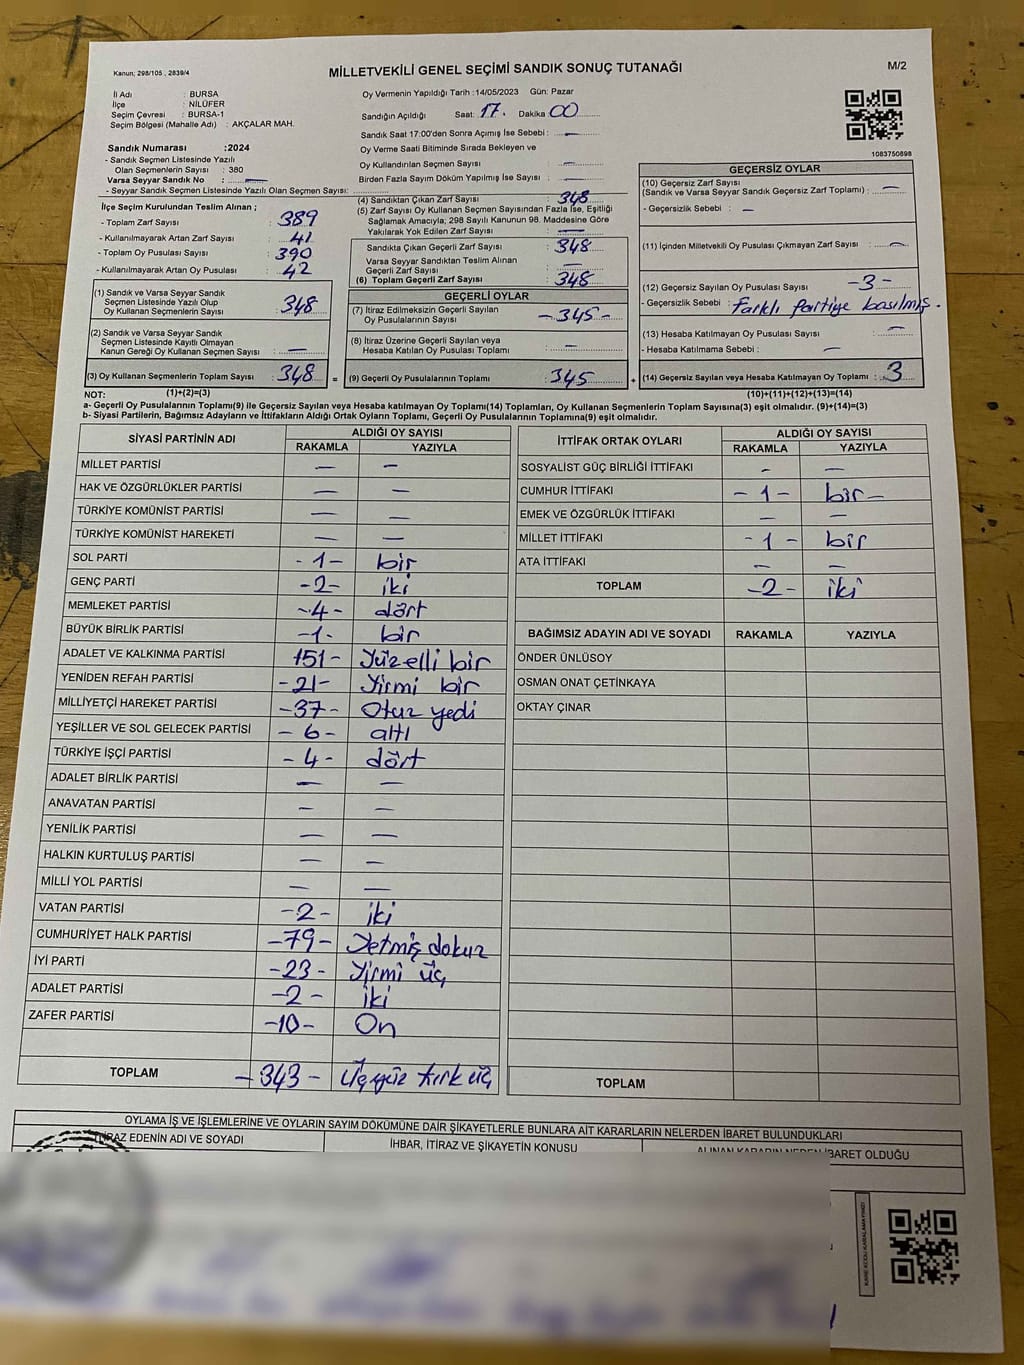 Kanun; 298/105 , 2839/4
MİLLETVEKİLİ GENEL SEÇİMİ SANDIK SONUÇ TUTANAĞI
M/2
İl Adı : BURSA
İlçe : NİLÜFER
Seçim Çevresi : BURSA-1
Seçim Bölgesi (Mahalle Adı) : AKÇALAR MAH.
Oy Vermenin Yapıldığı Tarih :14/05/2023 Gün: Pazar
Sandığın Açıldığı Saat: 17. Dakika 00
Sandık Saat 17:00'den Sonra Açımış İse Sebebi : —
Oy Verme Saati Bitiminde Sırada Bekleyen ve
Oy Kullandırılan Seçmen Sayısı : —
Birden Fazla Sayım Döküm Yapılmış İse Sayısı : —
1083750898
Sandık Numarası :2024
- Sandık Seçmen Listesinde Yazılı
Olan Seçmenlerin Sayısı : 380
Varsa Seyyar Sandık No : —
- Seyyar Sandık Seçmen Listesinde Yazılı Olan Seçmen Sayısı:
İlçe Seçim Kurulundan Teslim Alınan ;
- Toplam Zarf Sayısı : 389
- Kullanılmayarak Artan Zarf Sayısı : 41
- Toplam Oy Pusulası Sayısı : 390
- Kullanılmayarak Artan Oy Pusulası : 42
(1) Sandık ve Varsa Seyyar Sandık
Seçmen Listesinde Yazılı Olup
Oy Kullanan Seçmenlerin Sayısı : 348
(2) Sandık ve Varsa Seyyar Sandık
Seçmen Listesinde Kayıtlı Olmayan
Kanun Gereği Oy Kullanan Seçmen Sayısı : —
(3) Oy Kullanan Seçmenlerin Toplam Sayısı : 348
(4) Sandıktan Çıkan Zarf Sayısı : 348
(5) Zarf Sayısı Oy Kullanan Seçmen Sayısından Fazla İse, Eşitliği
Sağlamak Amacıyla; 298 Sayılı Kanunun 98. Maddesine Göre
Yakılarak Yok Edilen Zarf Sayısı : —
Sandıkta Çıkan Geçerli Zarf Sayısı : 348
Varsa Seyyar Sandıktan Teslim Alınan
Geçerli Zarf Sayısı : —
(6) Toplam Geçerli Zarf Sayısı : 348
GEÇERLİ OYLAR
(7) İtiraz Edilmeksizin Geçerli Sayılan
Oy Pusulalarının Sayısı : -345-
(8) İtiraz Üzerine Geçerli Sayılan veya
Hesaba Katılan Oy Pusulası Toplamı : —
= (9) Geçerli Oy Pusulalarının Toplamı : 345
GEÇERSİZ OYLAR
(10) Geçersiz Zarf Sayısı
(Sandık ve Varsa Seyyar Sandık Geçersiz Zarf Toplamı) : —
- Geçersizlik Sebebi : —
(11) İçinden Milletvekili Oy Pusulası Çıkmayan Zarf Sayısı : —
(12) Geçersiz Sayılan Oy Pusulası Sayısı : -3-
- Geçersizlik Sebebi : farklı partiye basılmış.
(13) Hesaba Katılmayan Oy Pusulası Sayısı : —
- Hesaba Katılmama Sebebi : —
+ (14) Geçersiz Sayılan veya Hesaba Katılmayan Oy Toplamı : 3
NOT: (1)+(2)=(3) (10)+(11)+(12)+(13)=(14)
a- Geçerli Oy Pusulalarının Toplamı(9) ile Geçersiz Sayılan veya Hesaba katılmayan Oy Toplamı(14) Toplamları, Oy Kullanan Seçmenlerin Toplam Sayısına(3) eşit olmalıdır. (9)+(14)=(3)
b- Siyasi Partilerin, Bağımsız Adayların ve İttifakların Aldığı Ortak Oyların Toplamı, Geçerli Oy Pusulalarının Toplamına(9) eşit olmalıdır.
SİYASİ PARTİNİN ADI ALDIĞI OY SAYISI
RAKAMLA YAZIYLA
MİLLET PARTİSİ — —
HAK VE ÖZGÜRLÜKLER PARTİSİ — —
TÜRKİYE KOMÜNİST PARTİSİ — —
TÜRKİYE KOMÜNİST HAREKETİ — —
SOL PARTİ -1- bir
GENÇ PARTİ -2- iki
MEMLEKET PARTİSİ -4- dört
BÜYÜK BİRLİK PARTİSİ -1- bir
ADALET VE KALKINMA PARTİSİ 151- Yüzelli bir
YENİDEN REFAH PARTİSİ -21- Yirmi bir
MİLLİYETÇİ HAREKET PARTİSİ -37- Otuz yedi
YEŞİLLER VE SOL GELECEK PARTİSİ -6- altı
TÜRKİYE İŞÇİ PARTİSİ -4- dört
ADALET BİRLİK PARTİSİ — —
ANAVATAN PARTİSİ — —
YENİLİK PARTİSİ — —
HALKIN KURTULUŞ PARTİSİ — —
MİLLİ YOL PARTİSİ — —
VATAN PARTİSİ -2- iki
CUMHURİYET HALK PARTİSİ -79- Yetmiş dokuz
İYİ PARTİ -23- Yirmi üç
ADALET PARTİSİ -2- iki
ZAFER PARTİSİ -10- On
TOPLAM -343- Üçyüz kırk üç
İTTİFAK ORTAK OYLARI ALDIĞI OY SAYISI
RAKAMLA YAZIYLA
SOSYALİST GÜÇ BİRLİĞİ İTTİFAKI - —
CUMHUR İTTİFAKI -1- bir-
EMEK VE ÖZGÜRLÜK İTTİFAKI — —
MİLLET İTTİFAKI -1- bir
ATA İTTİFAKI — —
TOPLAM -2- iki
BAĞIMSIZ ADAYIN ADI VE SOYADI RAKAMLA YAZIYLA
ÖNDER ÜNLÜSOY
OSMAN ONAT ÇETİNKAYA
OKTAY ÇINAR
TOPLAM
OYLAMA İŞ VE İŞLEMLERİNE VE OYLARIN SAYIM DÖKÜMÜNE DAİR ŞİKAYETLERLE BUNLARA AİT KARARLARIN NELERDEN İBARET BULUNDUKLARI
İTİRAZ EDENİN ADI VE SOYADI İHBAR, İTİRAZ VE ŞİKAYETİN KONUSU ALINAN KARARIN NEDEN İBARET OLDUĞU